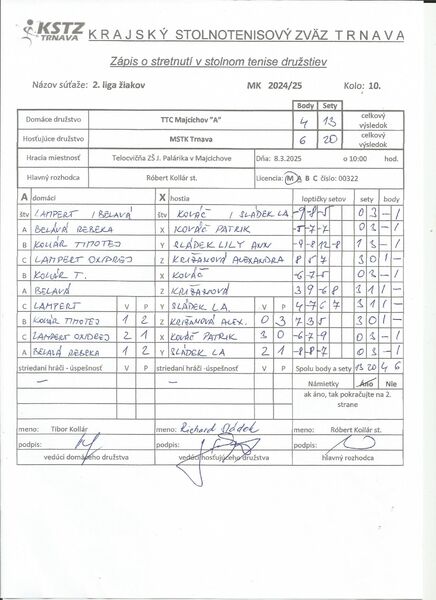 KSTZ TRNAVA KRAJSKÝ STOLNOTENISOVÝ ZVÄZ TRNAVA
Zápis o stretnutí v stolnom tenise družstiev
Názov súťaže: 2. liga žiakov MK 2024/25 Kolo: 10.
Body Sety
Domáce družstvo TTC Majcichov "A" 4 13 celkový výsledok
Hosťujúce družstvo MSTK Trnava 6 20 celkový výsledok
Hracia miestnosť Telocvičňa ZŠ J. Palárika v Majcichove Dňa: 8.3.2025 o 10:00 hod.
Hlavný rozhodca Róbert Kollár st. Licencia: M A B C číslo: 00322
A domáci X hostia loptičky setov sety body
štv LAMPERT / BELAVÁ štv KOVÁČ / SLÁDEK LA -9-8-5 0 3 - 1
A BELAVÁ REBEKA X KOVÁČ PATRIK -5-7-7 0 3 - 1
B KOLLÁR TIMOTEJ Y SLÁDEK LILY ANN -9-8 12-8 1 3 - 1
C LAMPERT ONDREJ Z KRIŽANOVÁ ALEXANDRA 8 5 7 3 0 1 -
B KOLLÁR T. X KOVÁČ -6-7-5 0 3 - 1
A BELAVÁ Z KRIŽANOVÁ 3 1 1 -
C LAMPERT V P Y SLÁDEK LA. V P 3 1 1 -
B KOLLÁR TIMOTEJ 1 2 Z KRIŽANOVÁ ALEX. 0 3 7 3 5 3 0 1 -
C LAMPERT ONDREJ 2 1 X KOVÁČ PATRIK 3 0 -6-7-9 0 3 - 1
A BELAVÁ REBEKA 1 2 Y SLÁDEK LA 2 1 -8-8-7 0 3 - 1
striedaní hráči - úspešnosť V P striedaní hráči - úspešnosť V P Spolu body a sety 13 20 4 6
— — Námietky Áno Nie
ak áno, tak pokračujte na 2. strane
meno: Tibor Kollár meno: Richard Sládek meno: Róbert Kollár st.
podpis: podpis: podpis:
vedúci domáceho družstva vedúci hosťujúceho družstva hlavný rozhodca